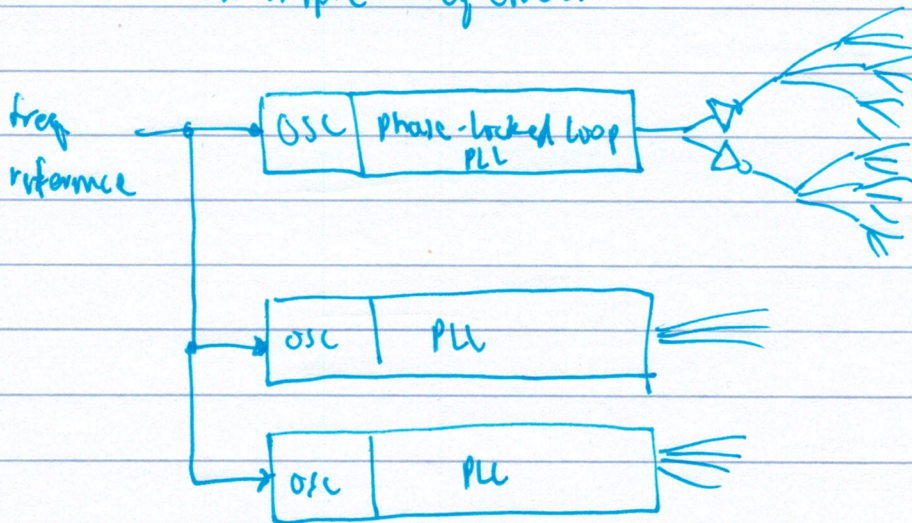 freq
reference
OSC
Phase-Locked Loop
PLL
OSC
PLL
OSC
PLL